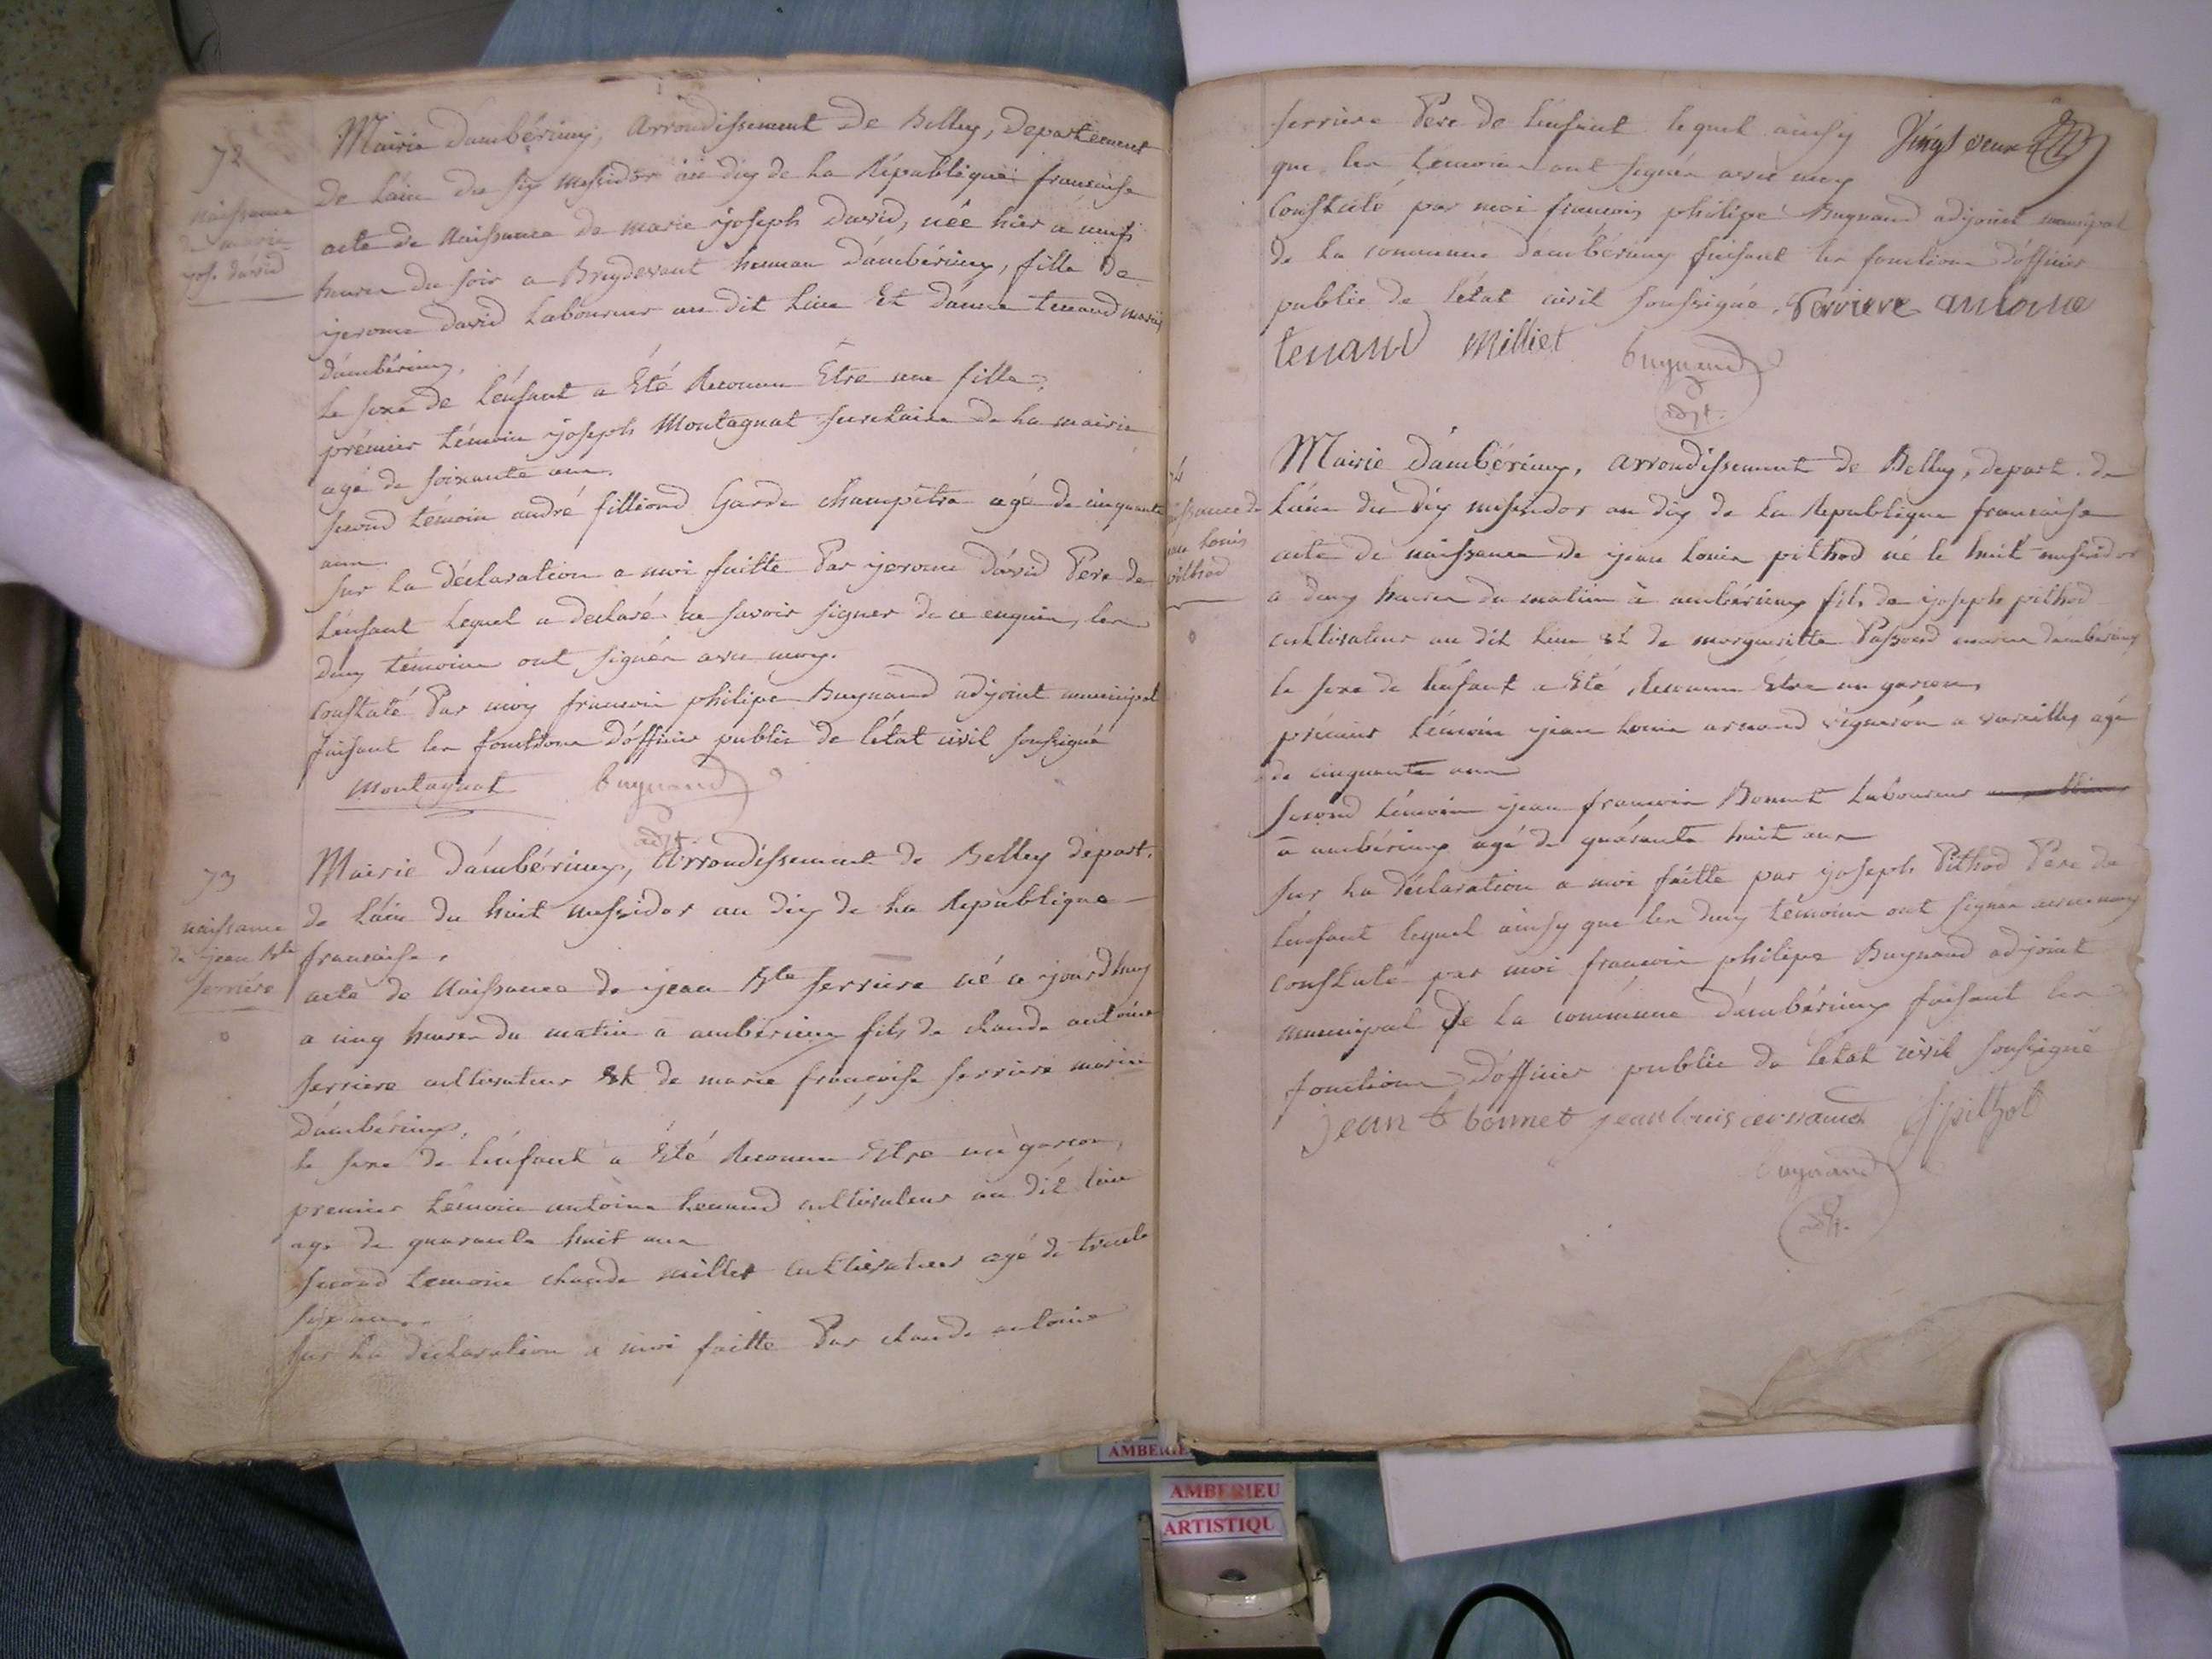 72
naissance
de marie
jos. david
Mairie d'ambérieux, arrondissement De Belley, Departement
De l'ain du six messidor an dix de la République francaise
acte de Naissance de marie joseph David, née hier a neuf
heures du soir a Breydevant hameau D'ambérieux, fille De
jerome David Laboureur au dit lieu Et d'anne tenand mariés
D'ambérieux,
Le sexe de L'énfant a Eté Reconnu Etre une fille.
prémier témoin joseph Montagnat secretaire de la mairie
agé de soixante ans.
second témoin andré filliond Garde champêtre agé de cinquante
ans
sur la déclaration a moi faitte Par jerome David Pere de
L'énfant Lequel a declaré ne savoir signer de ce enquis, les
deux témoins ont signés avec moy.
Constaté Par moy francois philipe Bugnand adjoint municipal
faisant les fonctions D'officier public de L'état civil soussigné
Montagnat bugnand
adjt.
73
naissance
de jean Bte
ferriére
Mairie D'ambérieux, Arrondissement de Belley départ.
de L'ain du huit messidor an dix de la Republique
francaise,
acte de Naissance de jean Bte ferriere né ce jourdhuy
a cinq heures du matin a ambérieux fils de claude antoine
ferriere cultivateur Et de marie françoise ferriere mariés
D'ambérieux,
le sexe de L'énfant a Eté Reconnu Estre un garcon,
premier témoin antoine tenand cultivateur au dit lieu
agé de quarante huit ans
second temoin claude millet cultivateur agé de trente
six ans.
sur la declaration a moi faitte Par claude antoine
ferriere Pere de L'énfant lequel ainsy Vingt deux
que les témoins ont signés avec moy
Constaté par moi francois philipe Bugnand adjoint municipal
de la commune d'ambérieux faisant les fonctions D'officier
public de l'état civil soussigné. ferriere antoine
tenand Milliet bugnand
adjt.
74
naissance de
jean Louis
pithod
Mairie D'ambérieux, arrondissement de Belley, depart. de
L'ain du Dix messidor an dix de la Republique francaise
acte de naissance de jean Louis pithod né le huit messidor
a deux heures du matin à ambérieux fils de joseph pithod
cultivateur au dit lieu Et de margueritte Passerd mariés d'ambérieux
le sexe de L'énfant a Eté Reconnu Etre un garcon,
prémier témoin jean Louis arnaud vigneron a vareilles agé
de cinquante ans
second témoin jean francois Bonnet Laboureur
a ambérieux agé de quarante huit ans
sur la déclaration a moi faitte par joseph Pithod Pere de
L'énfant lequel ainsy que les deux témoins ont signés avec moy
constaté par moi francois philipe Bugnand adjoint
municipal De la commune D'ambérieux faisant les
fonctions D'officier public de l'état civil soussigné
jean f bonnet jean louis arnaud J pithot
bugnand
adjt.
AMBERIEU
AMBERIEU
ARTISTIQU